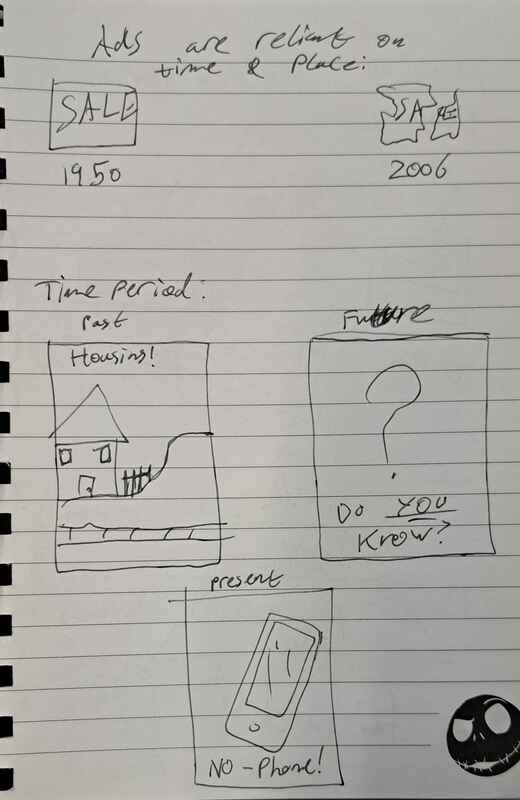 Ads are reliant on
time & place:
SALE
SA E
1950
2006
Time Period:
Past
Future
Housing!
Do YOU
Know?
present
NO-Phone!